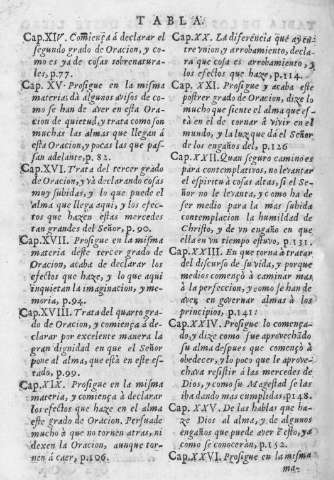 TABLA.
Cap. XIV. Comiença á declarar el
segundo grado de Oracion, y co-
mo es ya de cosas sobrenatura-
les, p.77.
Cap. XV. Prosigue en la misma
materia dà algunos avisos de co-
mo se han de aver en esta Oraci
on de quietud, y trata como son
muchas las almas que llegan á
esta Oracion, y pocas las que pas-
san adelante, p. 82.
Cap. XVI. Trata del tercer grado
de Oracion, y và declarando cosas
muy subidas, y lo que puede el
alma que llega aqui, y los efec-
tos que hazen estas mercedes
tan grandes del Señor, p. 90.
Cap. XVII. Prosigue en la misma
materia deste tercer grado de
Oracion, acaba de declarar los
efectos que haze, y lo que aqui
inquietan la imaginacion, y me-
moria, p.94.
Cap. XVIII. Trata del quarto gra-
do de Oracion, y comiença á de-
clarar por excelente manera la
gran dignidad en que el Señor
pone al alma, que està en este es-
tado, p.99.
Cap. XIX. Prosigue en la misma
materia, y comiença à declarar
los efectos que haze en el alma
este grado de Oracion. Persuade
mucho à que no tornen atras, ni
dexen la Oracion, aunque tor-
nen á caer, p.106.
Cap. XX. La diferencia que ay en-
tre vnion, y arrobamiento, decla-
ra que cosa es arrobamiento, y
los efectos que haze, p.114.
Cap. XXI. Prosigue y acaba este
postrer grado de Oracion, dize lo
mucho que siente el alma que es-
tà en él de tornar á vivir en el
mundo, y la luz que dà el Señor
de los engaños del, p.126
Cap. XXII. Quan seguro camino es
para contemplativos, no levantar
el espiritu á cosas altas, si el Se-
ñor no le levanta, y como ha de
ser medio para la mas subida
contemplacion la humildad de
Christo, y de vn engaño en que
ella en vn tiempo estuvo, p.131.
Cap. XXIII. En que torna à tratar
del discurso de su vida, y porque
medios começò à caminar mas
à la perfeccion, y como se han de
aver en governar almas à los
principios, p.141.
Cap. XXIV. Prosigue lo comença-
do, y dize como fue aprovechãdo
su alma despues que començò à
obedecer, y lo poco que le aprove-
chava resistir à las mercedes de
Dios, y como su Magestad se las
iba dando mas cumplidas, p.148.
Cap. XXV. De las hablas que ha-
ze Dios al alma, y de algunos
engaños que puede aver ẽ esto, y à
como se conoceràn, p.152.
Cap. XXVI. Prosigue en la misma
ma-